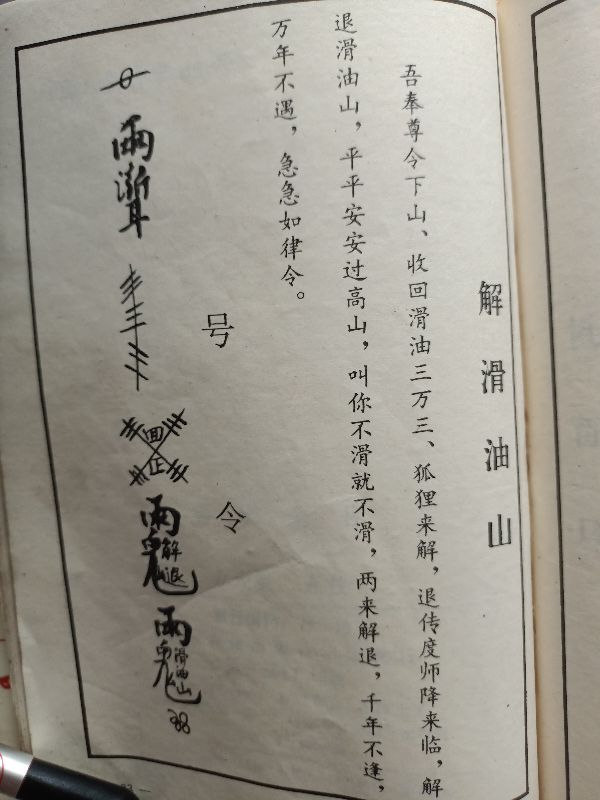 解滑油山
吾奉尊令下山、收回滑油三万三、狐狸来解，退传度师降来临，解
退滑油山，平平安安过高山，叫你不滑就不滑，两来解退，千年不逢，
万年不遇，急急如律令。
号令
雨渐耳
回正
雨鬼解退
雨鬼滑油山